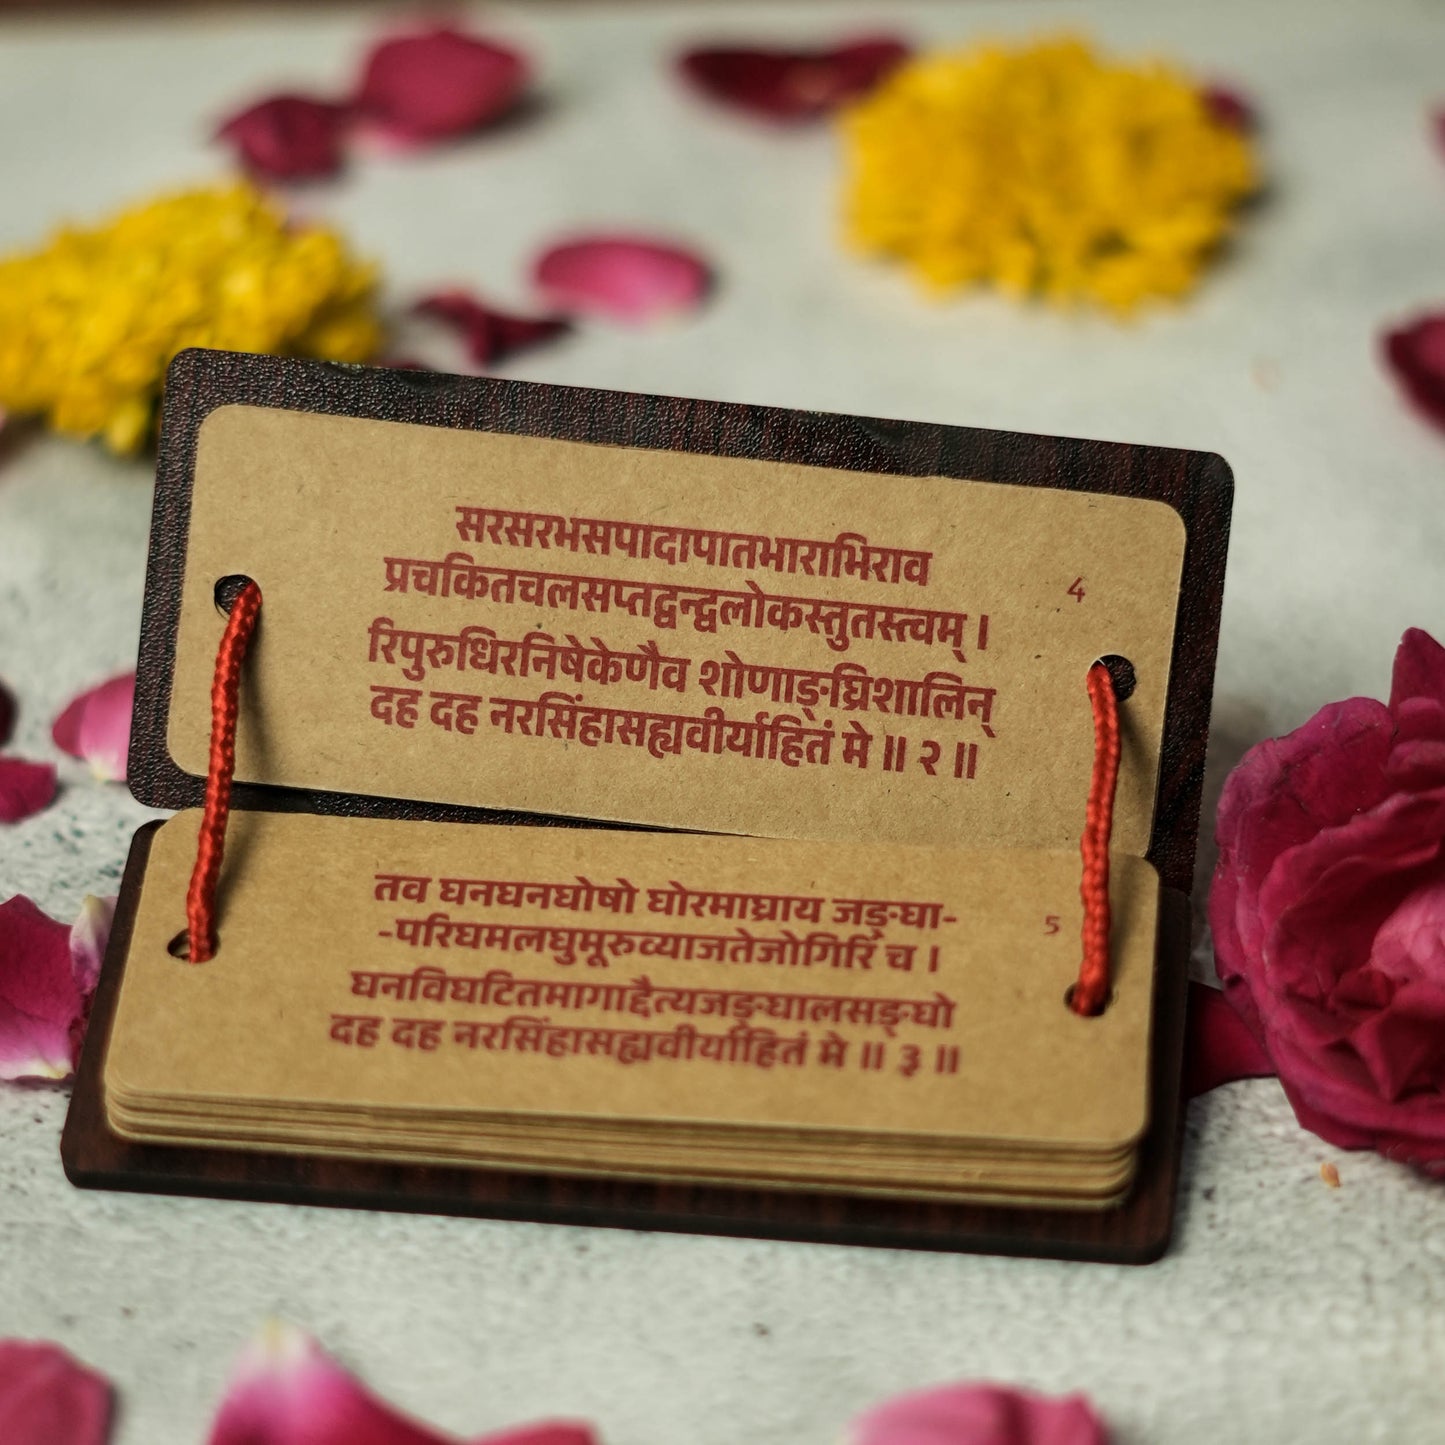 सरसरभसपादापातभाराभिराव
प्रचकितचलसप्तद्वन्द्वलोकस्तुतस्त्वम् ।
रिपुरुधिरनिषेकेणैव शोणाङ्घ्रिशालिन्
दह दह नरसिंहासह्यवीर्याहितं मे ॥ २ ॥
4
तव घनघनघोषो घोरमाघ्राय जङ्घा-
-परिघमलघुमूरुव्याजतेजोगिरिं च ।
घनविघटितमागाद्दैत्यजङ्घालसङ्घो
दह दह नरसिंहासह्यवीर्याहितं मे ॥ ३ ॥
5